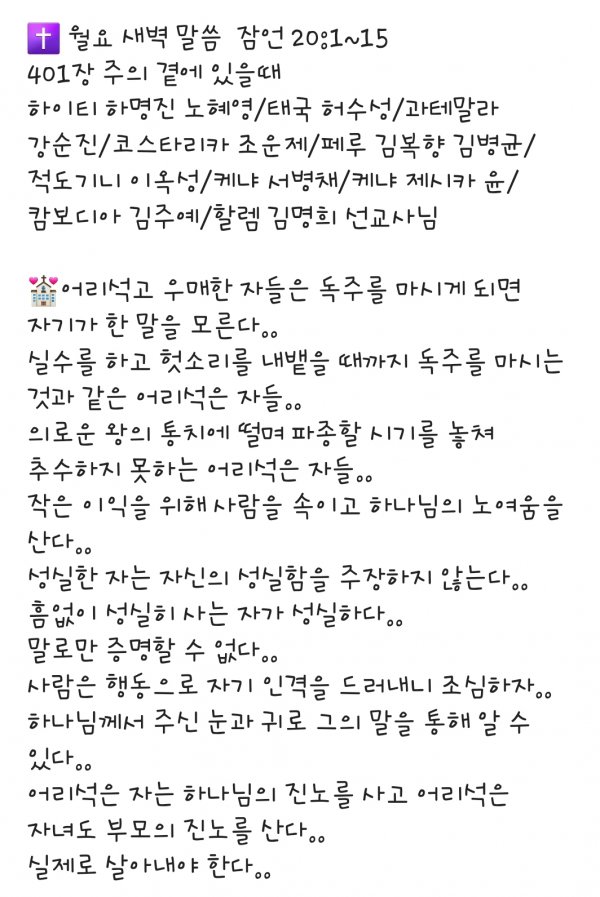 ✝️ 월요 새벽 말씀  잠언 20:1~15
401장 주의 곁에 있을때
하이티 하명진 노혜영/태국 허수성/과테말라
강순진/코스타리카 조운제/페루 김복향 김병균/
적도기니 이옥성/케냐 서병채/케냐 제시카 윤/
캄보디아 김주예/할렘 김명희 선교사님
💒어리석고 우매한 자들은 독주를 마시게 되면
자기가 한 말을 모른다..
실수를 하고 헛소리를 내뱉을 때까지 독주를 마시는
것과 같은 어리석은 자들..
의로운 왕의 통치에 떨며 파종할 시기를 놓쳐
추수하지 못하는 어리석은 자들..
작은 이익을 위해 사람을 속이고 하나님의 노여움을
산다..
성실한 자는 자신의 성실함을 주장하지 않는다..
흠없이 성실히 사는 자가 성실하다..
말로만 증명할 수 없다..
사람은 행동으로 자기 인격을 드러내니 조심하자..
하나님께서 주신 눈과 귀로 그의 말을 통해 알 수
있다..
어리석은 자는 하나님의 진노를 사고 어리석은
자녀도 부모의 진노를 산다..
실제로 살아내야 한다..